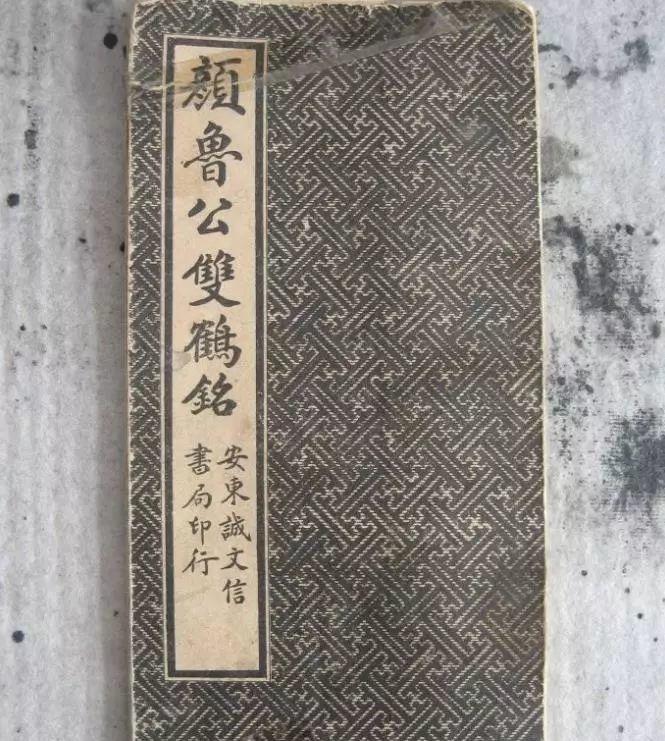 顏魯公雙鶴銘
安東誠文信
書局印行